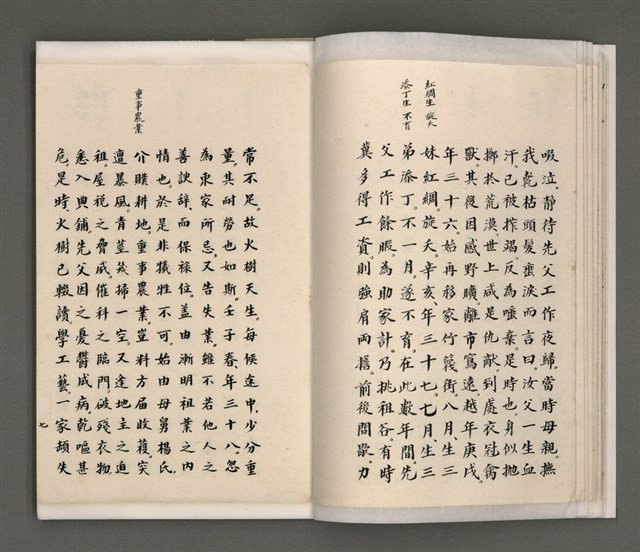 紅綢生 旋夭
添丁生 不育
吸泣。靜待先父工作夜歸。當時母親撫
我乾枯頭髮垂淚而言曰。汝父一生血
汗。已被搾竭。反為唾棄。是時也。身似拋
擲於荒漠。世上咸是仇敵。到處衣冠禽
獸。其後因感野曠離市窵遠。越年庚戌
年三十六。始再移家竹篾街。八月。生三
妹紅綢。旋夭。辛亥年三十七。七月。生三
弟添丁。不一月。遂不育。在此數年間。先
父工作餘暇。為助家計。乃挑租谷。有時
冀多得工資。則強肩兩擔。前後問歇。力
重事農業
常不足。故火樹天生。每候途中。少分重
量。其耐勞也如斯。壬子春。年三十八。忽
為東家所忌。又告失業。雖不若他人之
善諛辭。而保祿位。蓋由漸明祖業之內
情也。於是非犧牲不可。始由母舅楊氏
介贌耕地。重事農業。豈料方屆收穫。突
遭暴風。青莖茂掃一空。又逢地主之迫
租。屋稅之脅威。催科之臨門。破殘衣物
悉入典鋪。先父因之憂鬱成病。乾嘔甚
危。是時火樹已輟讀學工藝。一家頡失
七